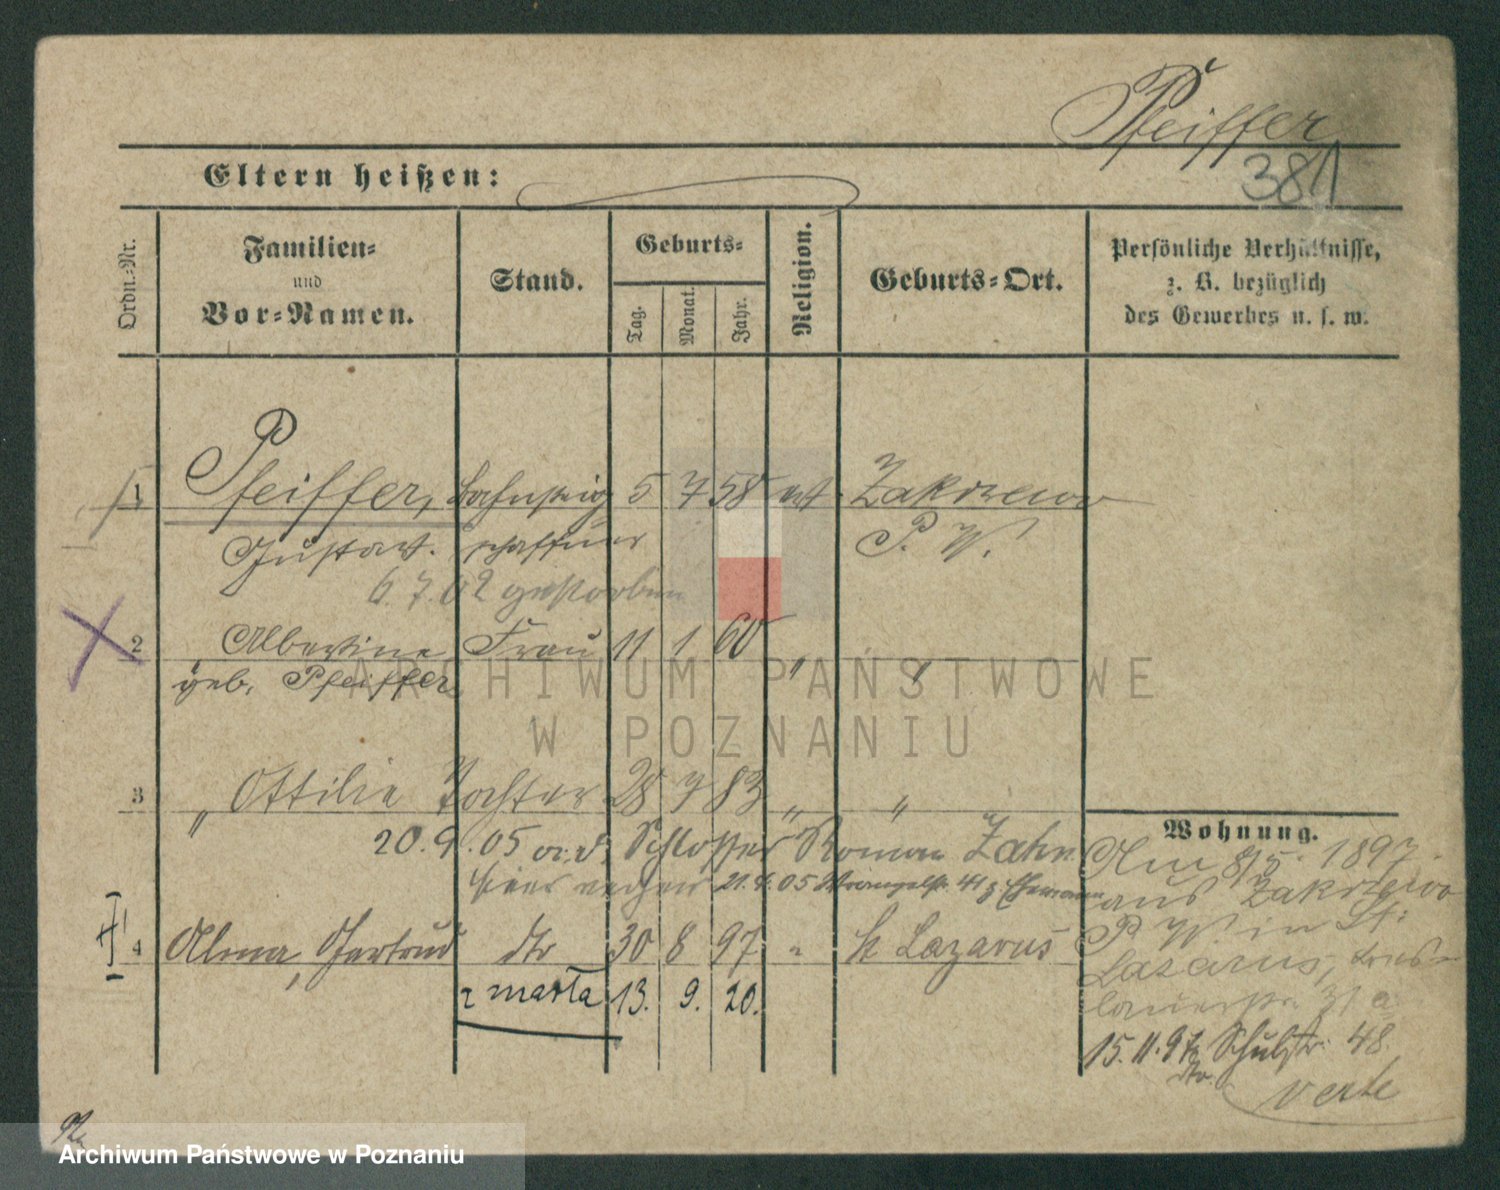 Pfeiffer
381
Eltern heißen:
Ordn.-Nr.
Familien-
und
Vor-Namen.
Stand.
Geburts-
Tag.
Monat.
Jahr.
Religion.
Geburts-Ort.
Persönliche Verhältnisse,
z. B. bezüglich
des Gewerbes u. s. w.
1 Pfeiffer, Bahnsteig 5 7 58 Zakrzewo
Gustav. schaffner P. W.
6.7.02 gestorben
2 Albertine Frau 11 1 60 " "
geb. Pfeiffer
3 " Ottilie Tochter 28 7 83 " "
20.9.05 Schlosser Roman Zahn
21. 05 Wrangelstr. 41 Ehemann
4 Alma, Gertrud dto 30 8 97 " St Lazarus
zmarła 13. 9. 20.
Wohnung.
Am 8/5. 1897
aus Zakrzewo
P W in St:
Lazarus,
15.11.97 Schulstr. 48.
dto.
verte
ARCHIWUM PAŃSTWOWE
W POZNANIU
Archiwum Państwowe w Poznaniu